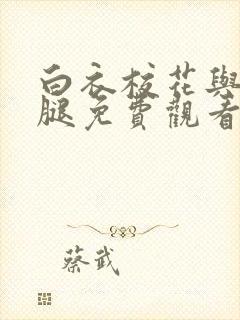 白衣校花與
腿免費觀看
蔡武